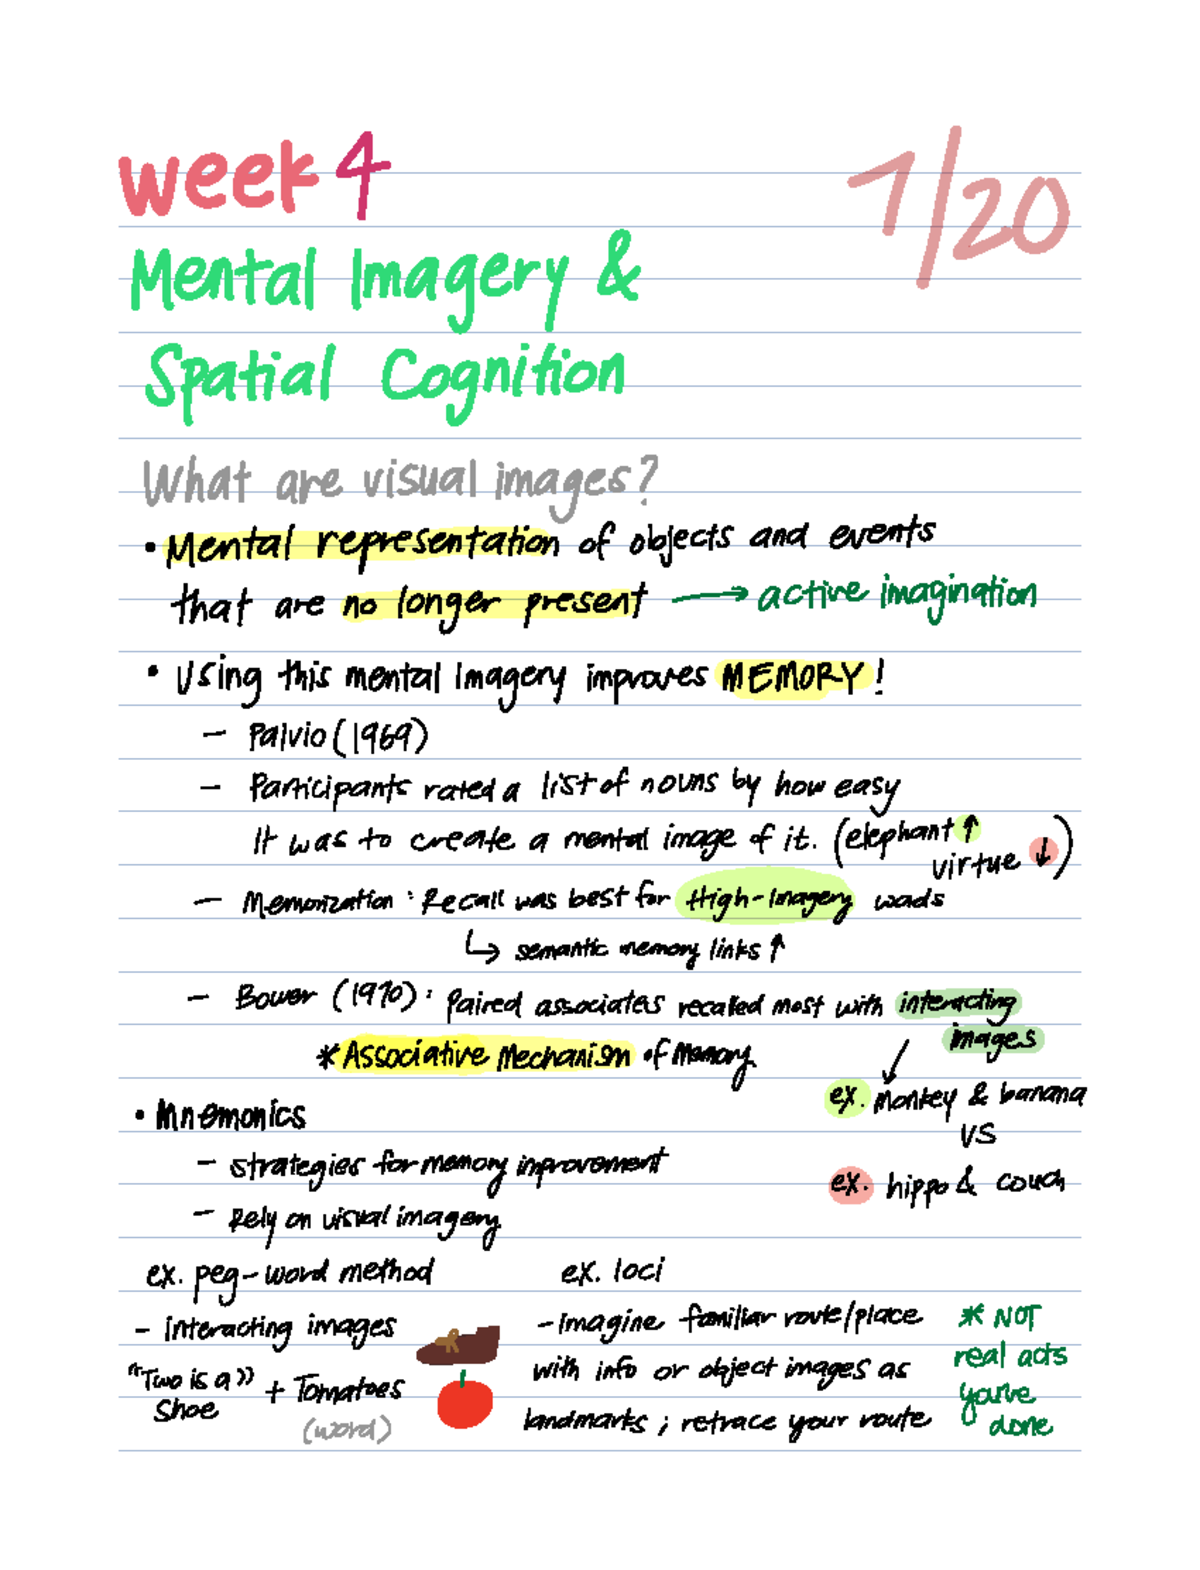 week 4
7/20
Mental Imagery &
Spatial Cognition
What are visual images?
• Mental representation of objects and events
that are no longer present → active imagination
• Using this mental Imagery improves MEMORY!
– Paivio (1969)
– Participants rated a list of nouns by how easy
It was to create a mental image of it. (elephant ↑
virtue ↓)
– Memorization : Recall was best for High-Imagery words
↳ semantic memory links ↑
– Bower (1970): Paired associates recalled most with interacting
images
* Associative Mechanism of Memory
ex. monkey & banana
VS
ex. hippo & couch
• Mnemonics
– strategies for memory improvement
– Rely on visual imagery
ex. peg-word method
– interacting images
"Two is a"
Shoe
+ Tomatoes
(word)
ex. loci
– Imagine familiar route/place
with info or object images as
landmarks ; retrace your route
* NOT
real acts
you've
done